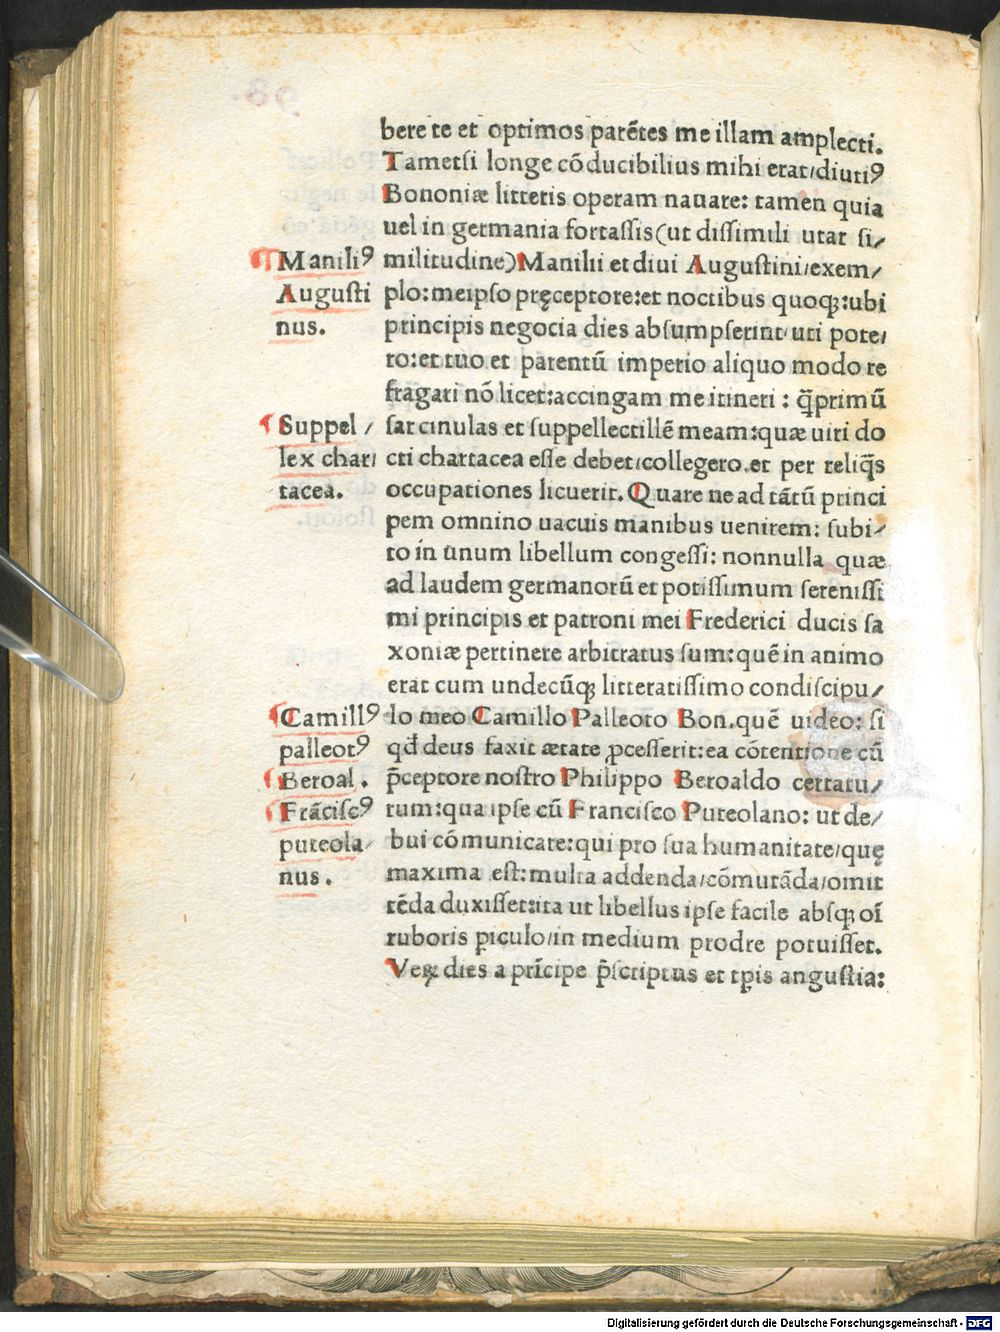 bere te et optimos parẽtes me illam amplecti.
Tametsi longe cõducibilius mihi erat/diutiꝰ
Bononiæ litteris operam nauare: tamen quia
uel in germania fortassis(ut dissimili utar si/
militudine)Manilii et diui Augustini/exem/
plo:meipso pręceptore:et noctibus quoqꝫ:ubi
principis negocia dies absumpserint/uti pote/
ro:et tuo et parentũ imperio aliquo modo re
fragari nõ licet:accingam me itineri : q̃primũ
sarcinulas et suppellectillẽ meam:quæ uiri do
cti chartacea esse debet/collegero.et per reliq̃s
occupationes licuerit. Quare ne ad tãtũ princi
pem omnino uacuis manibus uenirem: subi/
to in unum libellum congessi: nonnulla quæ
ad laudem germanorũ et potissimum serenissi
mi principis et patroni mei Frederici ducis sa
xoniæ pertinere arbitratus sum:quẽ in animo
erat cum undecũqꝫ litteratissimo condiscipu/
lo meo Camillo Palleoto Bon.quẽ uideo: si
qđ deus faxit ætate ꝓcesserit:ea cõtentione cũ
p̃ceptore nostro Philippo Beroaldo certatu/
rum:qua ipse cũ Francisco Puteolano: ut de/
bui cõmunicare:qui pro sua humanitate/quę
maxima est:multa addenda/cõmutãda/omit
tẽda duxisset:ita ut libellus ipse facile absqꝫ oĩ
ruboris ꝑiculo/in medium prodre potuisset.
Veꝝ dies a prĩcipe p̃scriptus et tꝑis angustia:
Maniliꝰ
Augusti
nus.
Suppel /
lex char/
tacea.
Camillꝰ
palleotꝰ
Beroal .
Frãciscꝰ
puteola/
nus .
98.
Digitalisierung gefördert durch die Deutsche Forschungsgemeinschaft - DFG